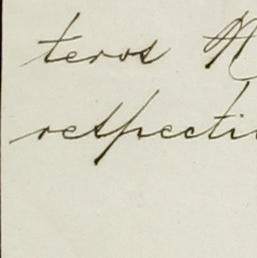 teros
respecti